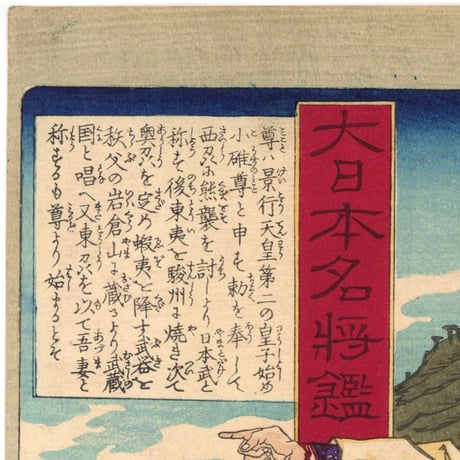 大日本名将鑑
尊ハ景行天皇第二の皇子始め
小碓尊と申も勅を奉して
西尽熊襲を討しより日本武と
称も後東夷を駿州に焼き次て
奥尽を定め蝦夷を降す武谷を
秩父の岩倉山に蔵るより武蔵
国と唱へ又東尽を以て吾妻と
称するも尊より始まるとそ